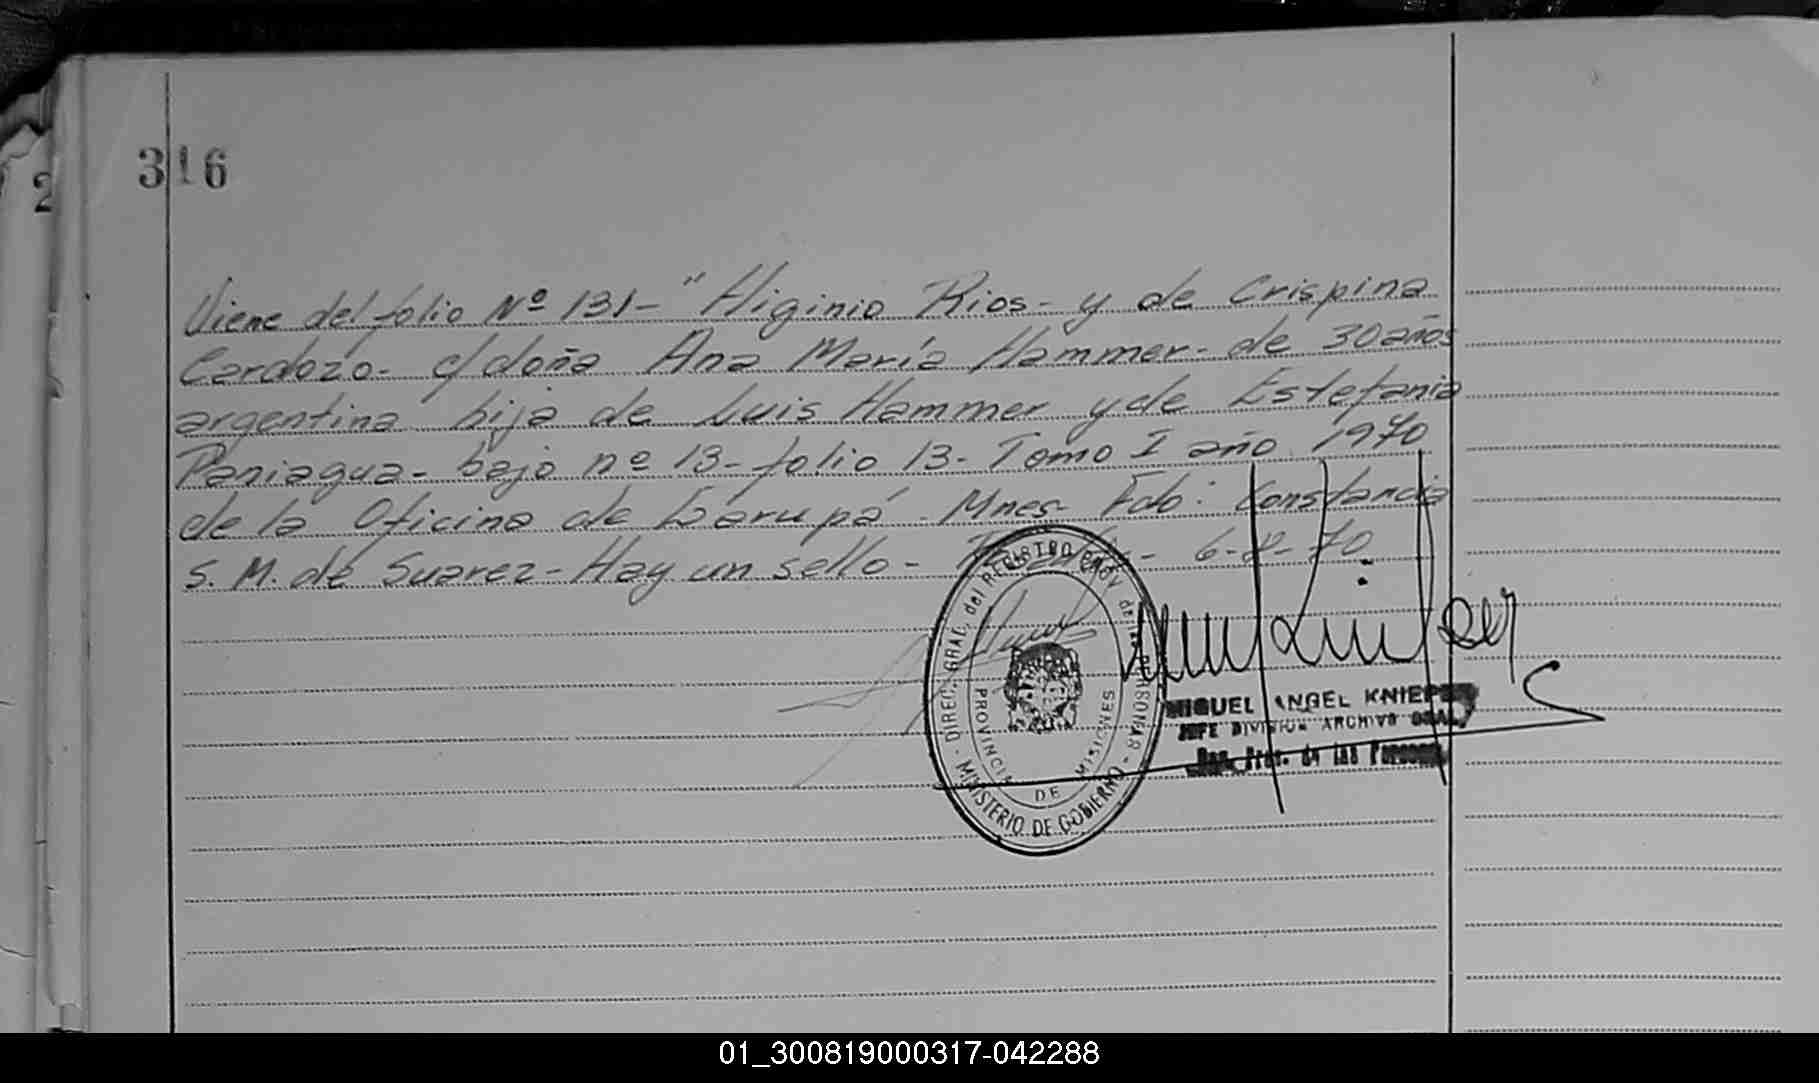 2
316
Viene del folio Nº 131- "Higinio Rios- y de Crispina
Cardozo- c/ doña Ana María Hammer- de 30 años
argentina hija de Luis Hammer y de Estefania
Paniagua- bajo nº 13- folio 13- Tomo I año 1970
de la Oficina de Garupá- Mnes- Fdo: Constancia
S. M. de Suarez- Hay un sello- 6-8-70
DIREC. GRAL. del REGISTRO PROV. de las PERSONAS
MINISTERIO DE GOBIERNO
PROVINCIA DE MISIONES
MIGUEL ANGEL KNIEPS
JEFE DIVISION ARCHIVO GRAL.
Prov. de las Personas
01_300819000317-042288